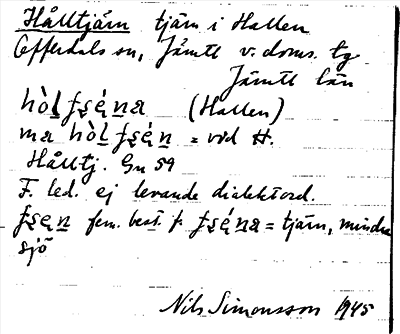 Hålltjärn tjärn i Hallen
Offerdals sn, Jämtl. v. doms. tg
Jämtl län
(Hallen)
ma = vid H.
Hålltj. Gn 59
F. led. ej levande dialektord.
fem. best. f. = tjärn, mindre
sjö
Nils Simonsson 1945